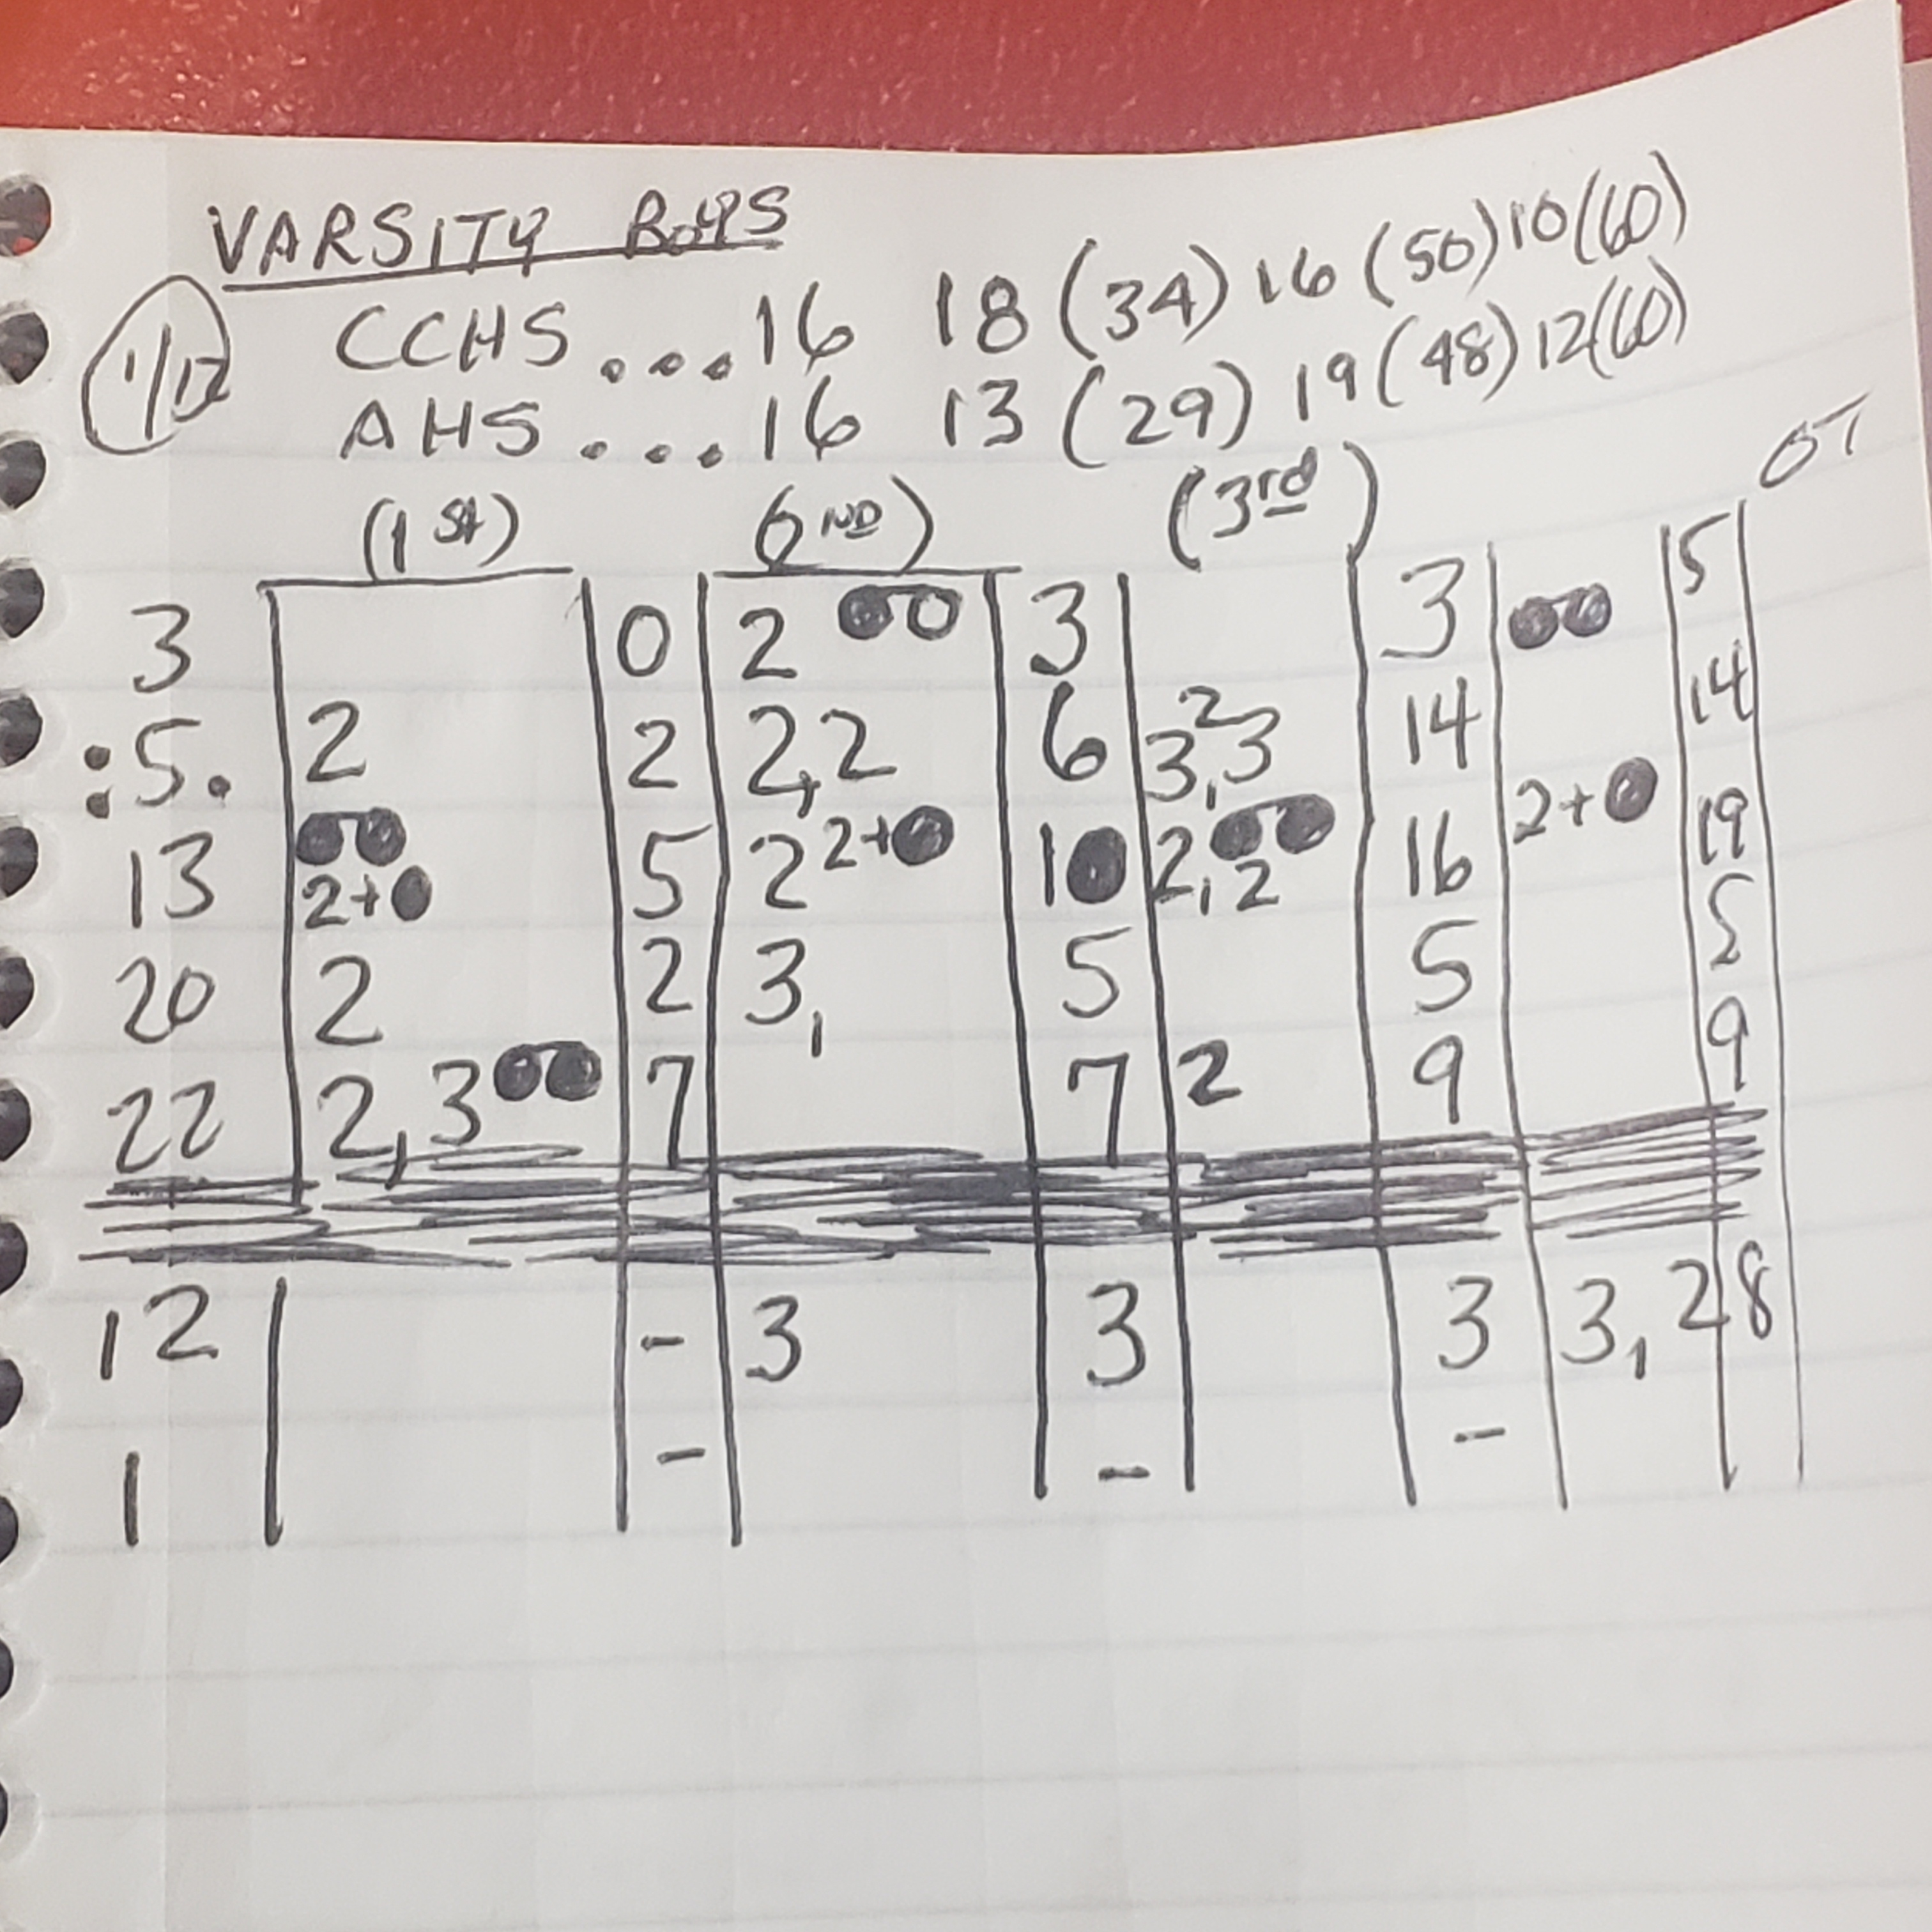 VARSITY BOYS
1/12
CCHS... 16 18 (34) 16 (50) 10 (60)
AHS... 16 13 (29) 19 (48) 12 (60)
OT
(1 ST) (2 ND) (3 rd)
3 0 2 ●○ 3 3 ●● 5
:5. 2 2 2,2 6 3,2 3 14 14
13 ●● 2+● 5 2 2+● 10 2,●● 2 16 2+● 19
20 2 2 3, 5 5 5
22 2,3 ●● 7 7 2 9 9
12 - 3 3 3 3,2 8
1 - - -